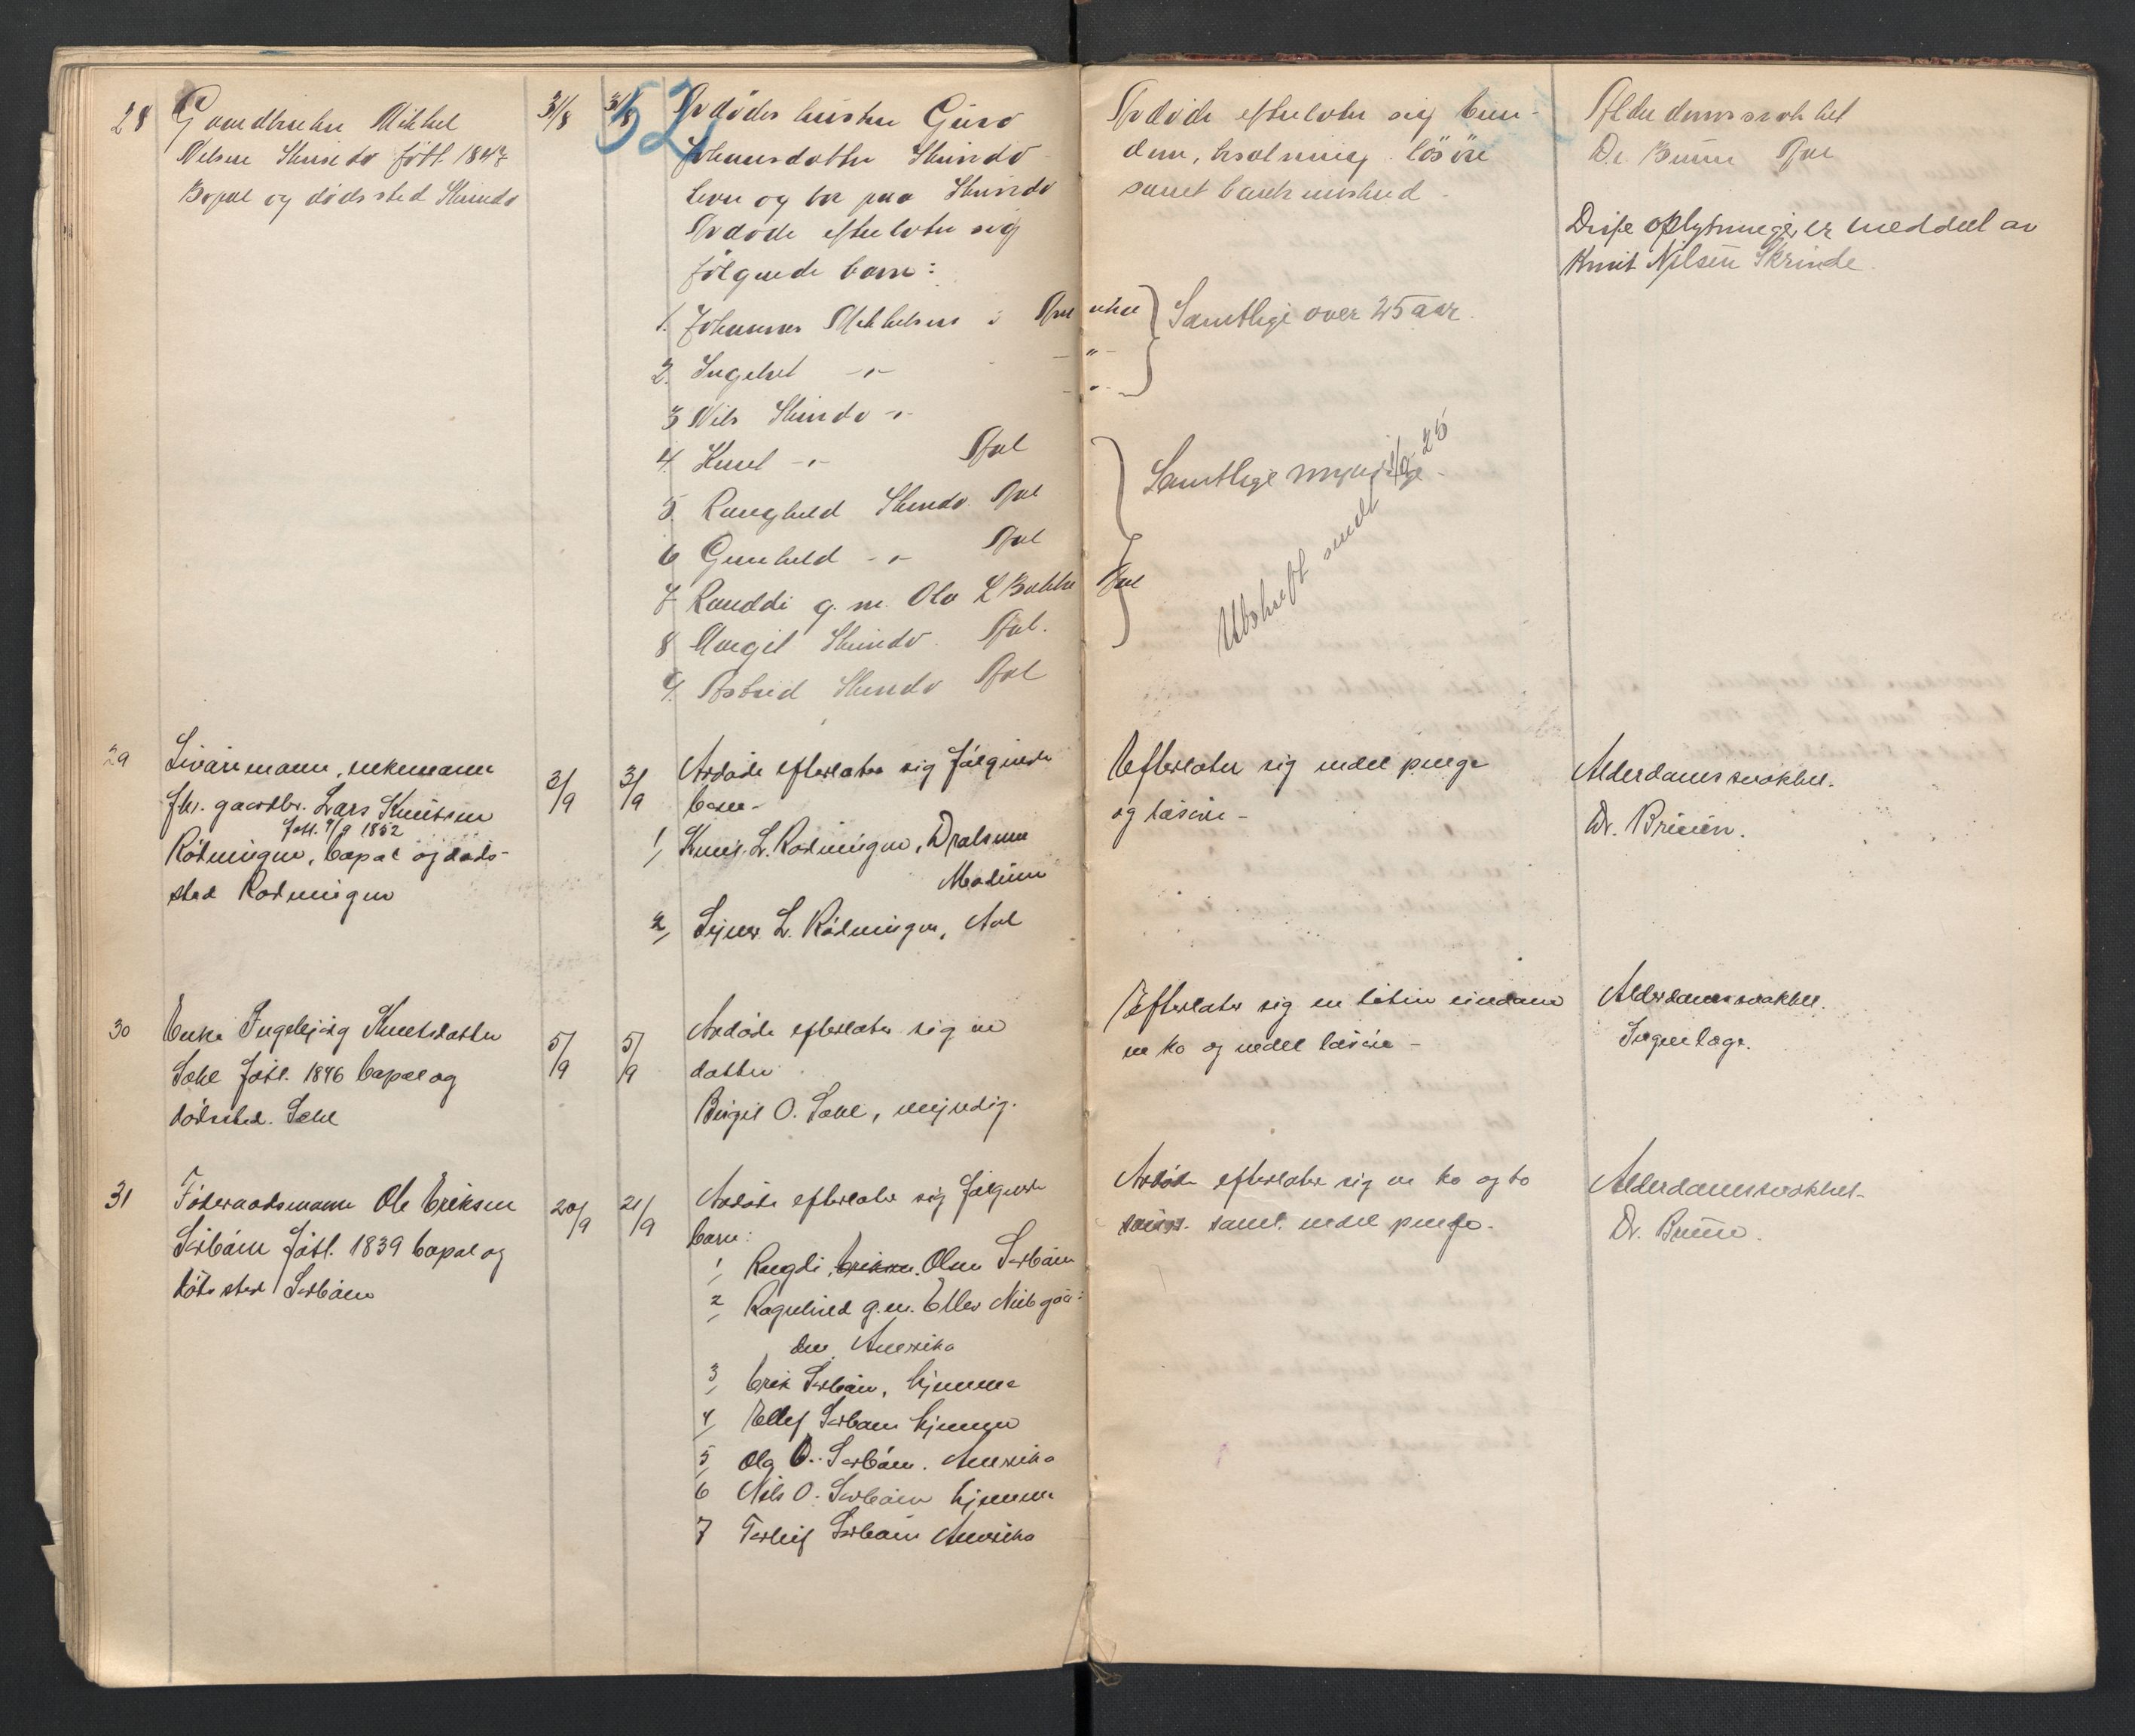 52
28
Gaardbruker Mikkel
Nilsen Skrinde født 1847
Bopæl og dødssted Skrinde
31/8
31/8
Avdødes hustru Guro
Johannesdatter Skrinde
lever og bor paa Skrinde
Avdøde efterlater sig
følgende barn:
1. Johannes Mikkelsen i Amerika
2. Ingebret -"- - " -
3 Nils Skrinde -"- - " -
4. Knut -"- Aal
5. Ranghild Skrinde Aal
6 Gunhild -"- Aal
7 Randdi g. m. Ola L Bakke Aal
8 Margit Skrinde. Aal.
9. Astrid Skrinde Aal
Avdøde efterlater sig eien-
dom, besætning løsøre
samt bankinskud.
Samtlige over 25 aar.
Samtlige myndige.
Utskrift sendt 1/9 25
Alderdomssvakhet
Dr. Bruun Aal
Disse oplysninger er meddelt av
Knut Nilsen Skrinde.
29
Livøremann, enkemann
fhv. gaardbr. Lars Knutsen
født. 9/9 1852
Rødningen, bopæl og døds-
sted Rødningen
3/9
3/9
Avdøde efterlater sig følgende
barn -
1, Knut. L. Rødningen, Dralsrud
Modum
2, Sejner L. Rødningen, Aal
Efterlater sig endel penge
og løsøre -
Alderdomssvakhet.
Dr. Bruun.
30
Enke Ingebjørg Knutsdatter
Sæhl født. 1846 bopæl og
dødssted. Sæhl
5/9
5/9
Avdøde efterlater sig en
datter
Birgit O. Sæhl, myndig.
Efterlater sig en liten eiendom
en ko og endel løsøre -
Alderdomssvakhet.
Ingen læge.
31
Føderaadsmann Ole Eriksen
Sørbøen født. 1839 bopæl og
dødssted Sørbøen
20/9
21/9
Avdøde efterlater sig følgende
barn:
1, Rangdi Eriksen. Olsen Sørbøen
2, Ragnhild g.m. Ellev Nibgaar-
den, Amerika
3, Erik Sørbøen, hjemme
4, Ellef Sørbøen hjemme
5, Ola O. Sørbøen. Amerika
6 Nils O. Sørbøen hjemme
7 Torleif Sørbøen Amerika
Avdøde efterlater sig en ko og to
sauer. samt. endel penge.
Alderdomssvakhet-
Dr. Bruun.